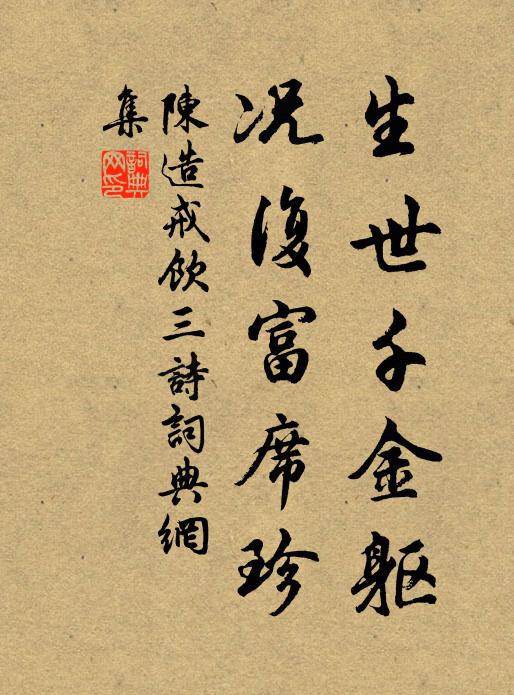 生世千金躯
况復富席珍
陳造戒飲三詩詞典網
集
詞典網印